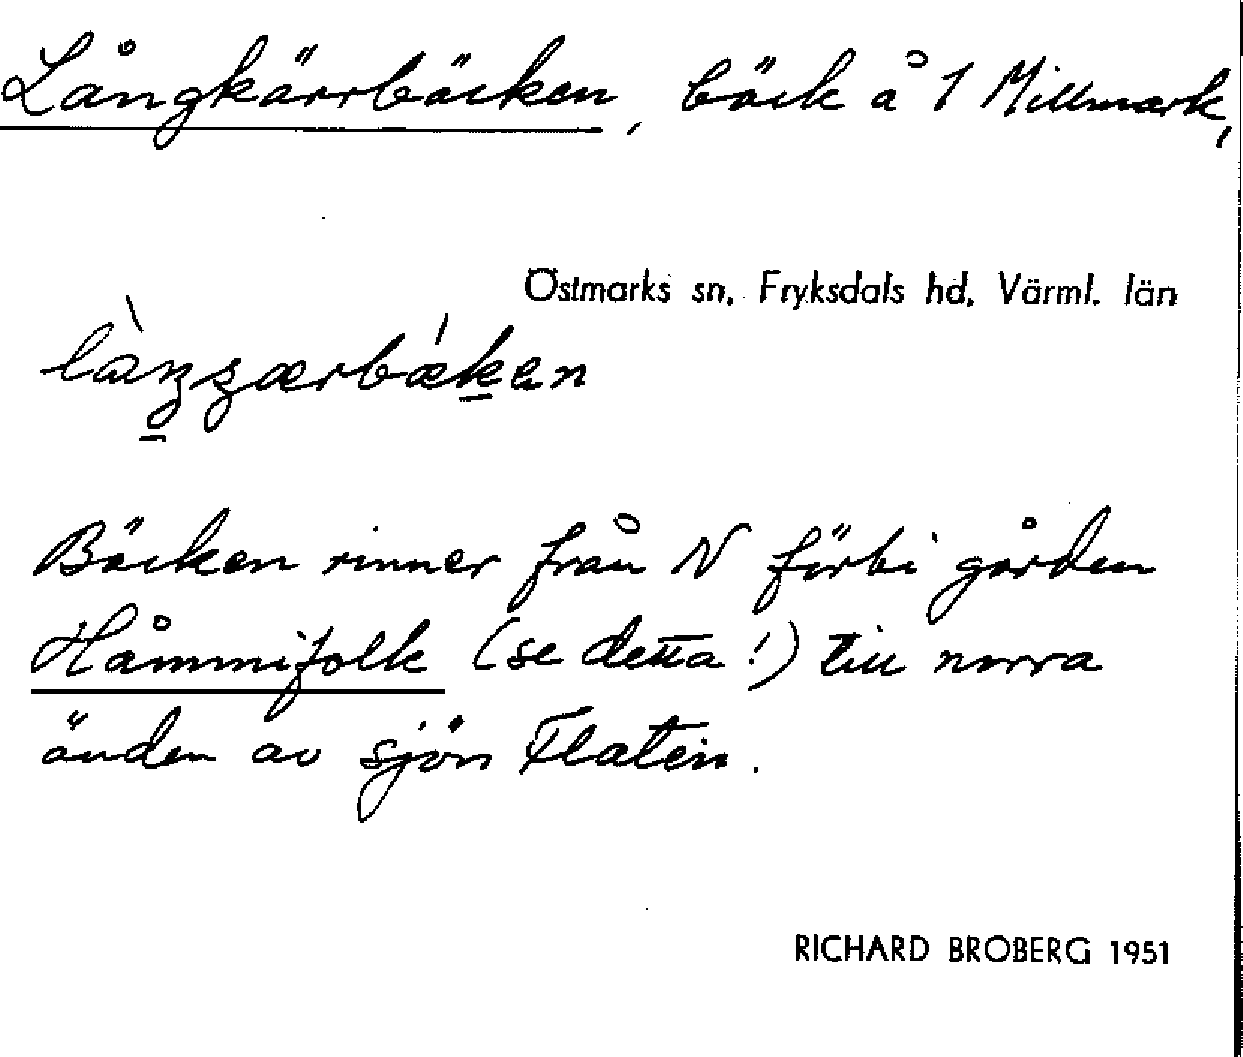 Långkärrbäcken, bäck å 1 Millmark,
Östmarks sn, Fryksdals hd, Värml. län
Bäcken rinner från N förbi gården
Håmmifolk (se detta!) till norra
änden av sjön Flaten.
RICHARD BROBERG 1951